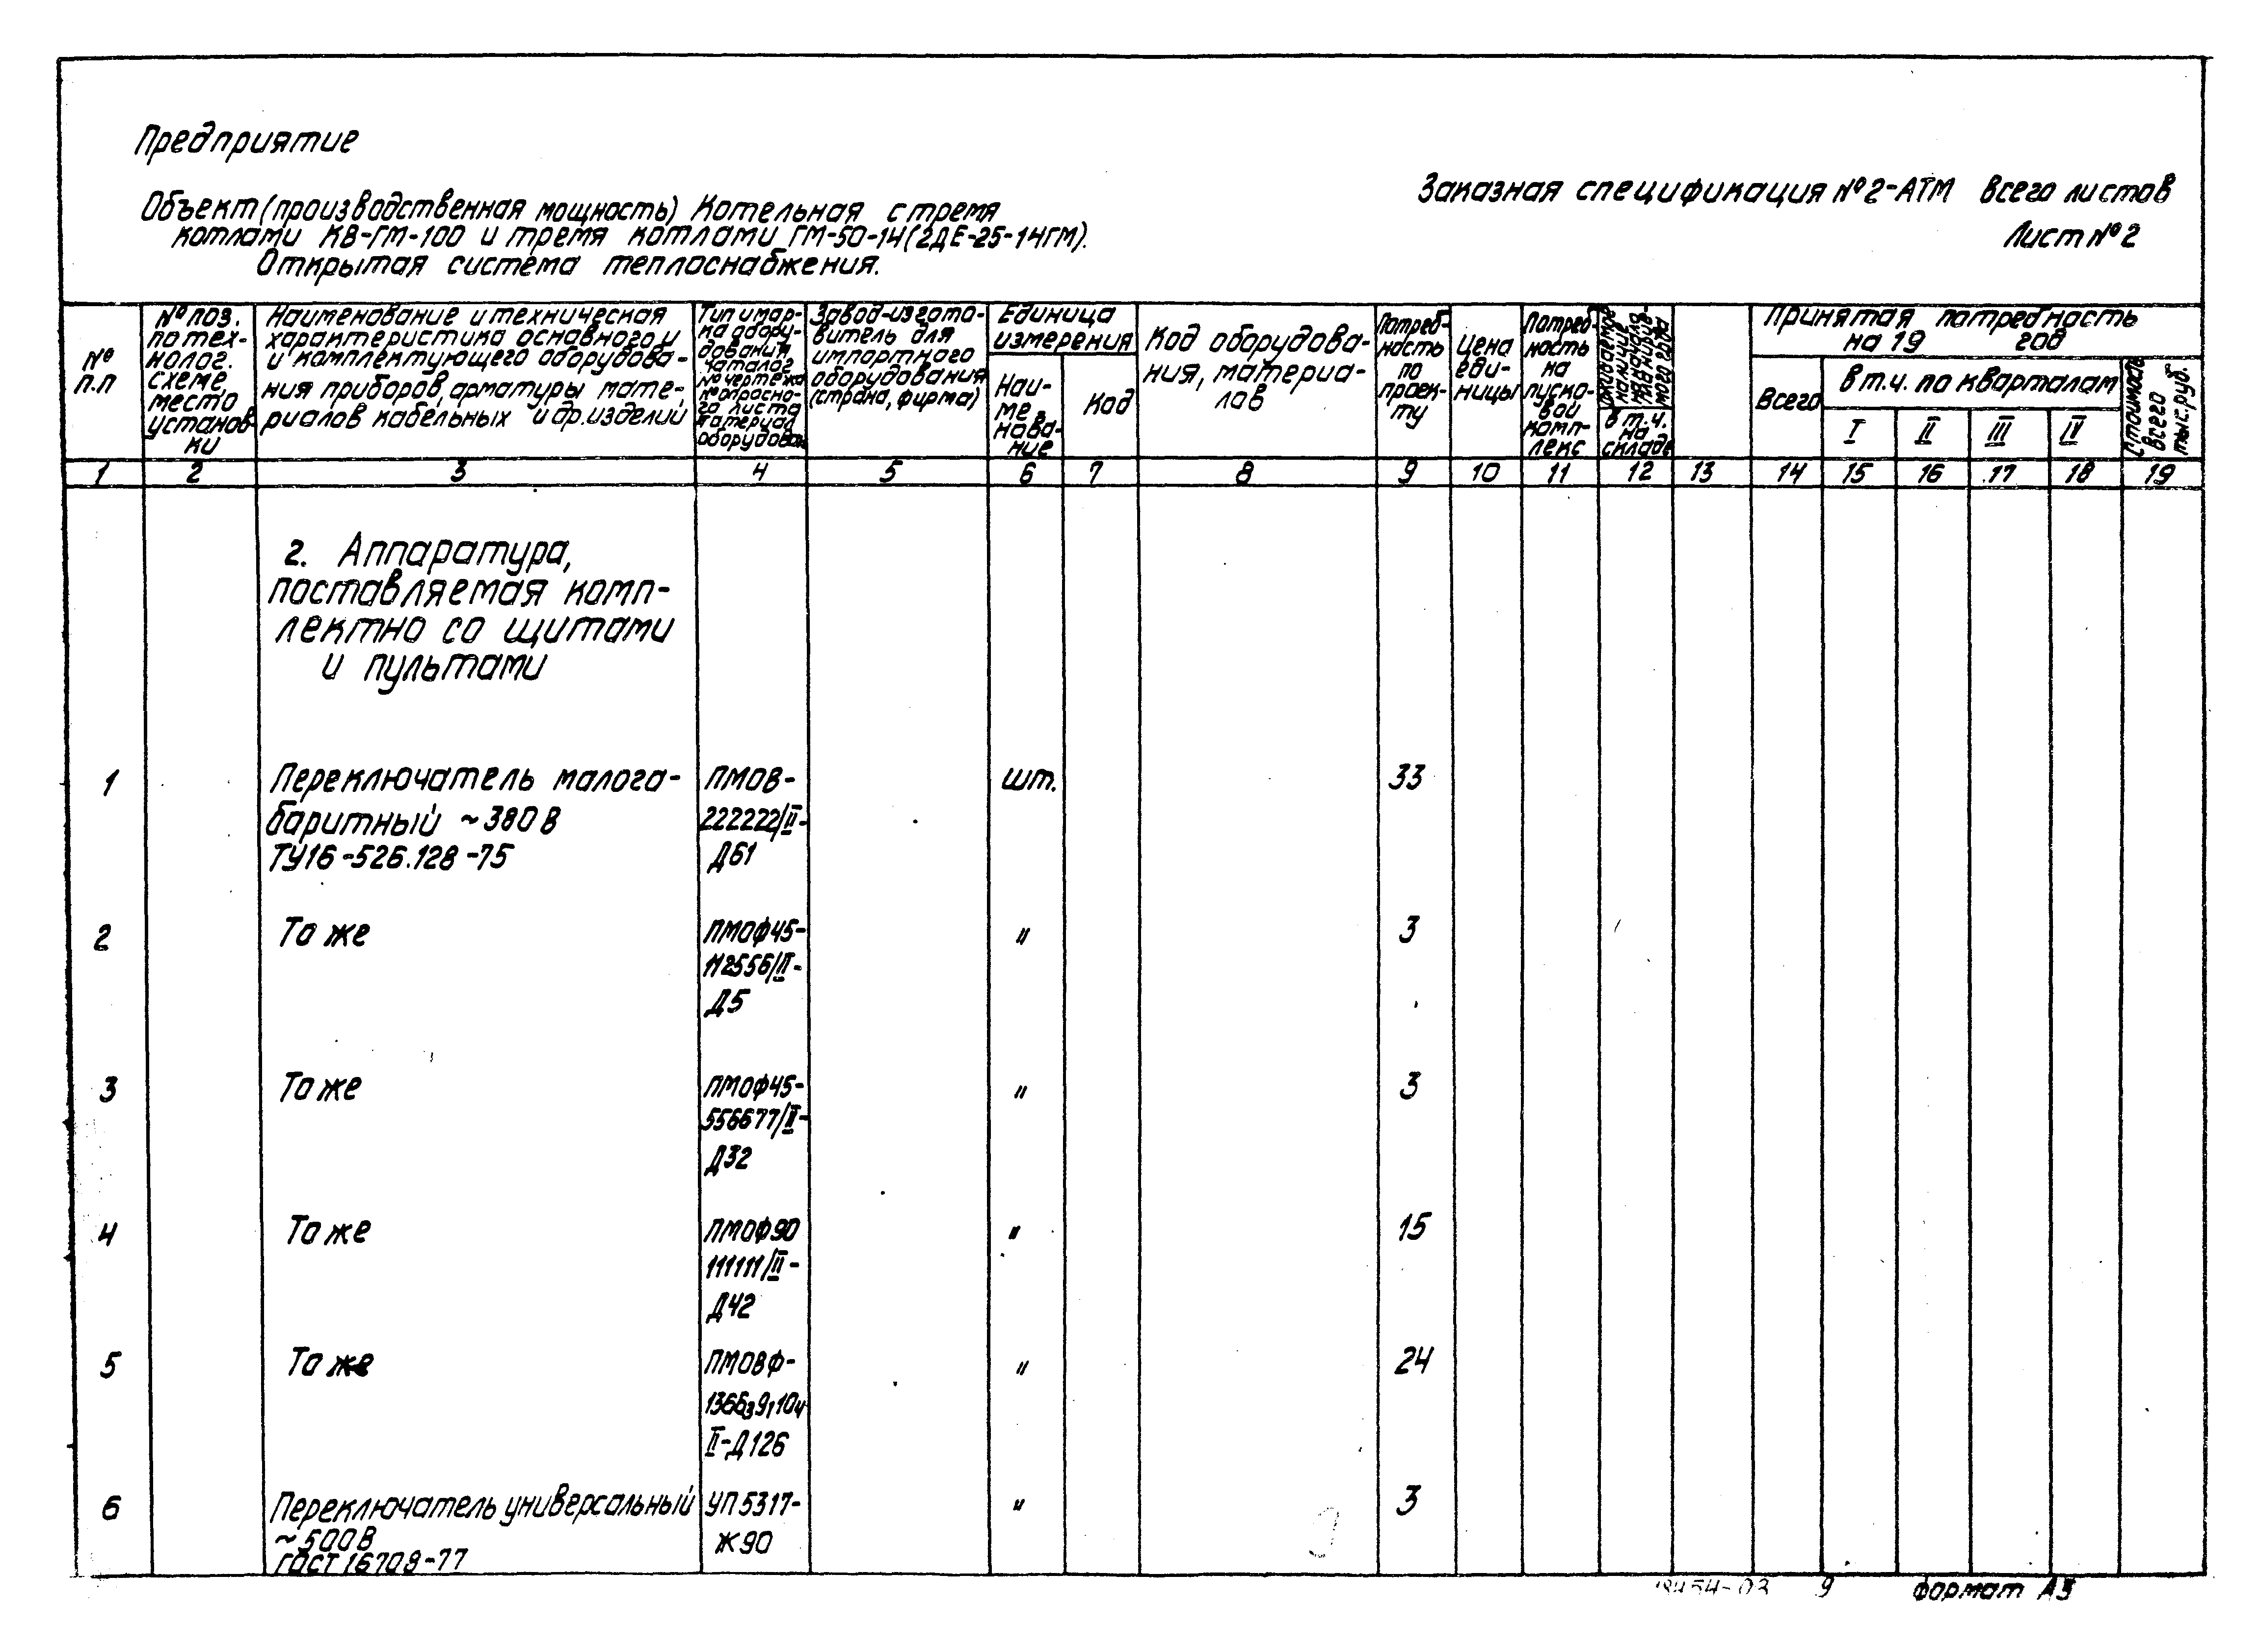 Предприятие
Заказная спецификация №2-АТМ всего листов
Лист №2
Объект (производственная мощность) Котельная с тремя
котлами КВ-ГМ-100 и тремя котлами ГМ-50-14 (2ДЕ-25-14ГМ).
Открытая система теплоснабжения.
№
п.п
№ поз.
по тех-
нолог.
схеме,
место
установ
ки
Наименование и техническая
характеристика основного и
и комплектующего оборудова-
ния приборов, арматуры мате-
риалов кабельных и др. изделий
Тип и мар-
ка обору-
дования
каталог
№ чертежа
№ опросно-
го листа
Материал
оборудован
Завод-изгото-
витель для
импортного
оборудования
(страна, фирма)
Единица
измерения
Наи-
ме-
нова-
ние
Код
Код оборудова-
ния, материа-
лов
Потреб-
ность
по
проек-
ту
Цена
еди-
ницы
Потреб-
ность
на
пуско-
вой
комп-
лекс
Ожидаемое
наличие
на начало
планируе-
мого года
в т.ч.
на
складе
Принятая потребность
на 19 год
Всего
в т.ч. по кварталам
I II III IV
Стоимость
всего
тыс. руб.
1 2 3 4 5 6 7 8 9 10 11 12 13 14 15 16 17 18 19
2. Аппаратура,
поставляемая комп-
лектно со щитами
и пультами
1 Переключатель малога- ПМОВ- шт. 33
баритный ~380 В 222222/II-
ТУ16-526.128-75 Д61
2 То же ПМОФ45- " 3
112556/II-
Д5
3 То же ПМОФ45- " 3
556677/II-
Д32
4 То же ПМОФ90 " 15
111111/II-
Д42
5 То же ПМОВФ- " 24
1366₃9₁10₄
II-Д126
6 Переключатель универсальный УП5317- " 3
~500В Ж90
ГОСТ 16708-77
18454-03 9 Формат А3